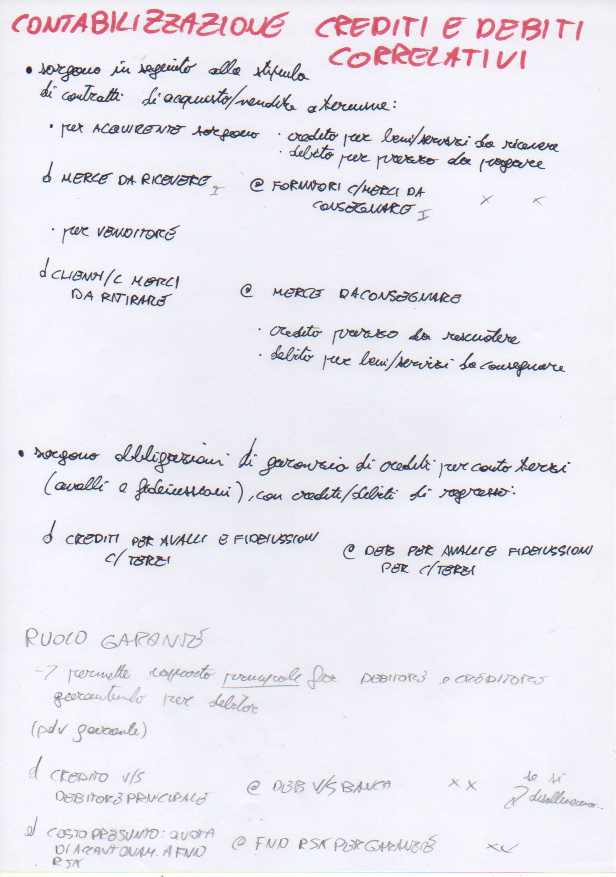 CONTABILIZZAZIONE CREDITI E DEBITI
CORRELATIVI
• sorgono in seguito alla stipula
di contratti di acquisto/vendita a termine:
· per ACQUIRENTE sorgono · credito per beni/servizi da ricevere
· debito per prezzo da pagare
d MERCE DA RICEVERE I @ FORNITORI C/MERCI DA x x
CONSEGNARE I
· per VENDITORE
d CLIENTI/C MERCI
DA RITIRARE @ MERCE DA CONSEGNARE
· credito prezzo da riscuotere
· debito per beni/servizi da consegnare
• sorgono obbligazioni di garanzia di crediti per conto terzi
(avalli e fideiussioni), con crediti/debiti di regresso:
d CREDITI PER AVALLI E FIDEIUSSIONI
C/TERZI @ DEB PER AVALLI E FIDEIUSSIONI
PER C/TERZI
RUOLO GARANTE
-> permette rapporto principale fra DEBITORE e CREDITORE
garantendo per debitor
(pdv garante)
d CREDITO V/S @ DEB V/S BANCA x x se si
DEBITORE PRINCIPALE
d COSTO PRESUNTO: QUOTA @ FND RSK PER GARANZIE xx
DI ACCANTONAM. A FND
RSK